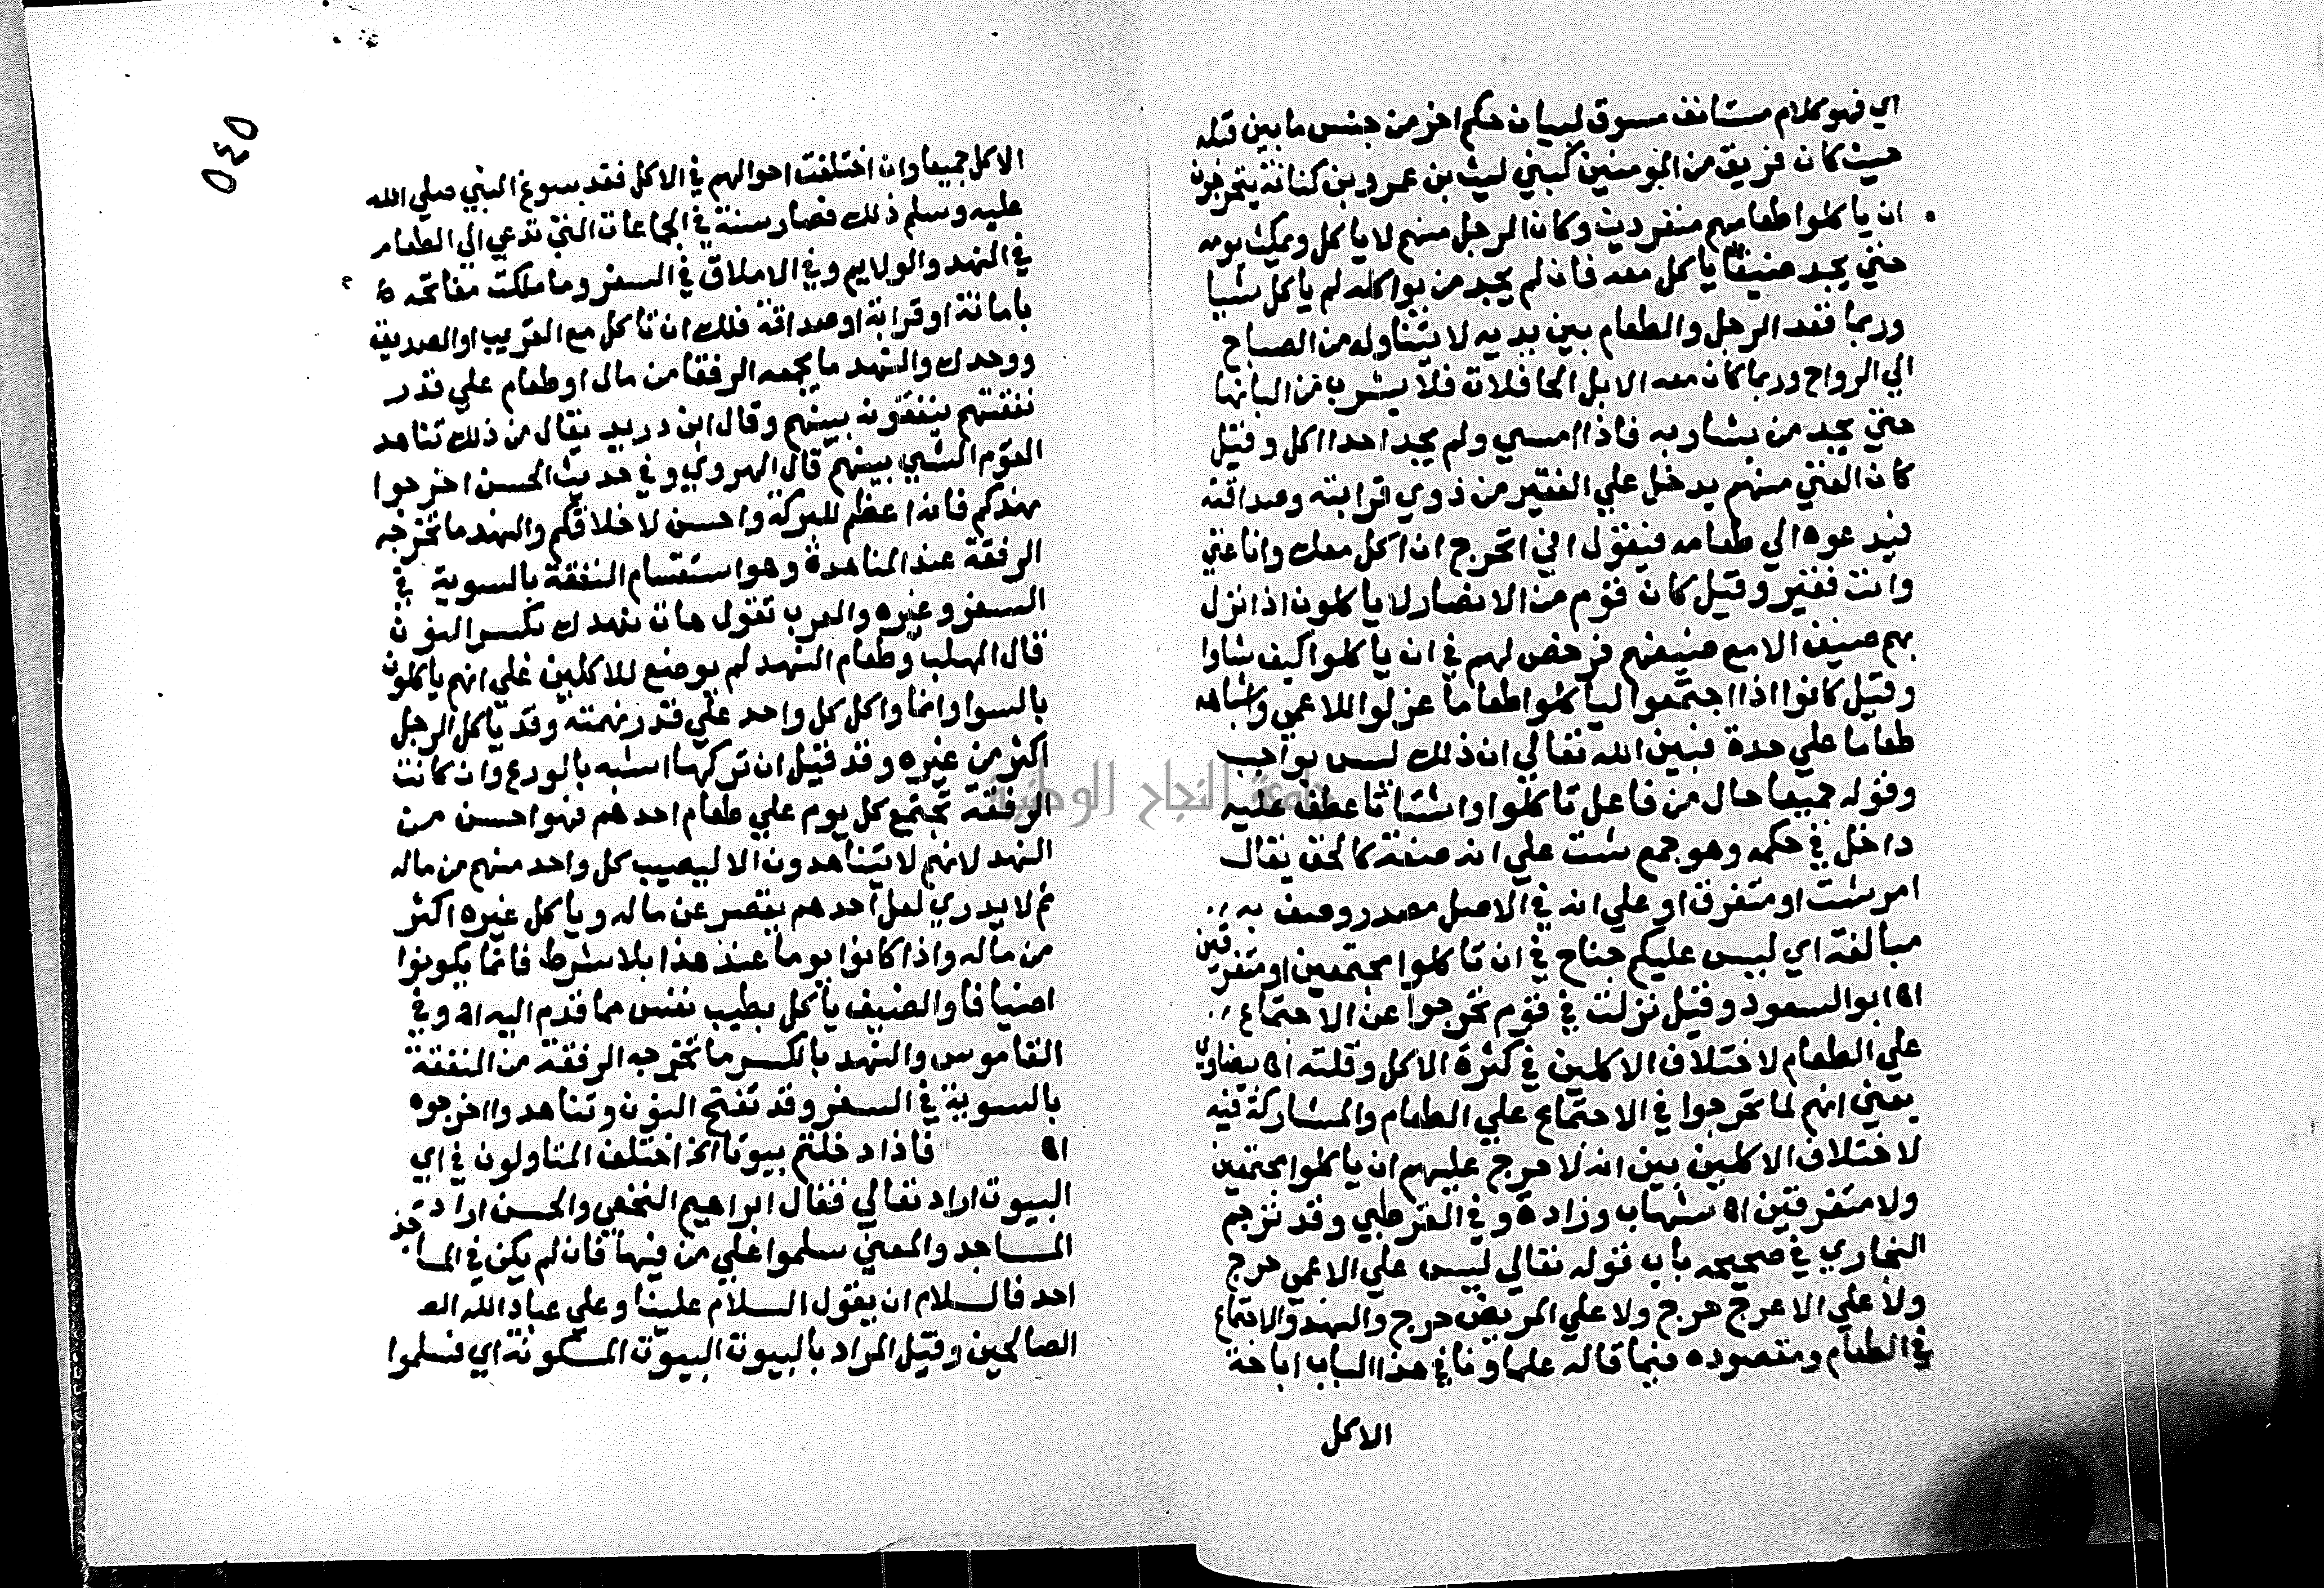 اي فهو كلام مستانف مسوق لبيان حكم اخر من جنس ما بين قبله
حيث كان فريق من المومنين كبني ليث بن عمرو بن كنانة يتحرجون
ان ياكلوا طعامهم منفردين وكان الرجل منهم لا ياكل ويمكث يومه
حتي يجد ضيفا ياكل معه فان لم يجد من يواكله لم ياكل شيا
وربما قعد الرجل والطعام بين يديه لا يتناوله من الصباح
الي الرواح وربما كان معه الابل الحافلات فلا يشرب من البانها
حتي يجد من يشاربه فاذا امسي ولم يجد احدا اكل وقيل
كان الغني منهم يدخل علي الفقير من ذوي قرابته وصداقته
فيدعوه الي طعامه فيقول اني اتحرج ان اكل معك وانا غني
وانت فقير وقيل كان قوم من الانصار لا ياكلون اذا نزل
بهم ضيف الا مع ضيفهم فرخص لهم في ان ياكلوا كيف شاوا
وقيل كانوا اذا اجتمعوا لياكلوا طعاما عزلوا للاعمي واشباهه
طعاما علي حدة فبين الله تعالي ان ذلك ليس بواجب
وقوله جميعا حال من فاعل تاكلوا واشتاتا عطف عليه
داخل في حكمه وهو جمع شت علي انه صفة كالحق يقال
امر شت او متفرق او علي انه في الاصل مصدر وصف به
مبالغة اي ليس عليكم جناح في ان تاكلوا مجتمعين او متفرقين
اه ابو السعود وقيل نزلت في قوم تحرجوا عن الاجتماع
علي الطعام لاختلاف الاكلين في كثرة الاكل وقلته اه بيضاوي
يعني انهم لما تحرجوا في الاجتماع علي الطعام والمشاركة فيه
لاختلاف الاكلين بين انه لا حرج عليهم ان ياكلوا مجتمعين
ولا متفرقين اه شهاب وزاده وفي القرطبي وقد ترجم
البخاري في صحيحه باب قوله تعالي ليس علي الاعمي حرج
ولا علي الاعرج حرج ولا علي المريض حرج والنهد والاجتماع
في الطعام ومقصوده فيما قاله علماونا في هذا الباب اباحة
الاكل
٥٤٥
الاكل جميعا وان اختلفت احوالهم في الاكل فقد سوغ النبي صلي الله
عليه وسلم ذلك فصار سنة في الجاعات التي تدعي الي الطعام
في النهد والولايم وفي الاملاق في السفر وما ملكت مفاتحه
بامانة او قرابة او صداقة فلك ان تاكل مع القريب او الصديق
ووحدك والنهد ما يجمعه الرفقا من مال او طعام علي قدر
نفقتهم ينفقونه بينهم وقال ابن دريد يقال من ذلك تناهد
القوم الشي بينهم قال الهروي وفي حديث الحسن اخرجوا
نهدكم فانه اعظم للبركة واحسن لاخلاقكم والنهد ما تخرجه
الرفقة عند المناهدة وهو استقسام النفقة بالسوية في
السفر وغيره والعرب تقول هات نهدك بكسر النون
قال المهلب وطعام النهد لم يوضع للاكلين علي انهم ياكلون
بالسوا وانما واكل كل واحد علي قدر نهمته وقد ياكل الرجل
اكثر من غيره وقد قيل ان تركها اشبه بالورع وان كانت
الرفقة تجتمع كل يوم علي طعام احدهم فهو احسن من
النهد لانهم لا يتناهدون الا ليصيب كل واحد منهم من ماله
ثم لا يدري لعل احدهم يقصر عن ماله وياكل غيره اكثر
من ماله واذا كانوا يوما عند هذا بلا شرط فانما يكونوا
اضيافا والضيف ياكل بطيب نفس مما قدم اليه اه وفي
القاموس والنهد بالكسر ما تخرجه الرفقة من النفقة
بالسوية في السفر وقد تفتح النون وتناهدوا اخرجوه
اه فاذا دخلتم بيوتا الخ اختلف المتاولون في اي
البيوت اراد تعالي فقال ابراهيم النخعي والحسن اراد
المساجد والمعني سلموا علي من فيها فان لم يكن في المساجد
احد فالسلام ان يقول السلام علينا وعلي عباد الله الصـ
الصالحين وقيل المراد بالبيوت البيوت المسكونة اي فسلموا
جامعة النجاح الوطنية